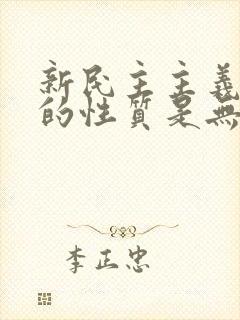 新民主主義
的性質是無
李正忠